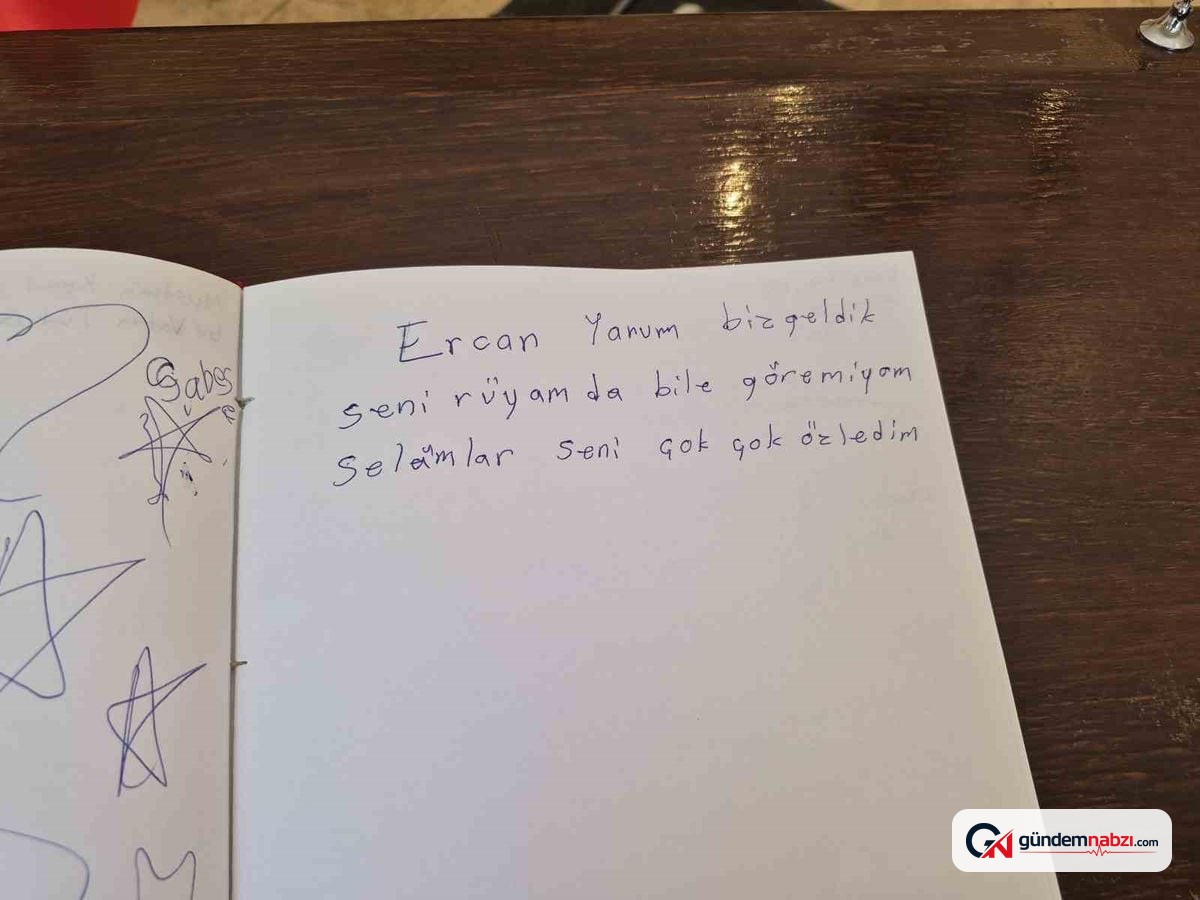 Ercan Yanum bizgeldik
seni rüyamda bile göremiyom
Selâmlar seni çok çok özledim
gündemnabzı.com